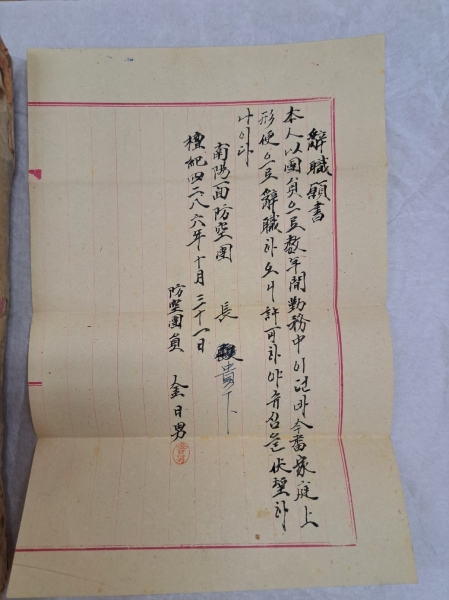 辭職願書
本人以團員으로數年間勤務中이던바今番家庭上
形便으로辭職하오니許可하야주심을伏望하
나이다
檀紀四二八六年十月三十一日
防空團員 金日男
南陽面防空團 長 貴下